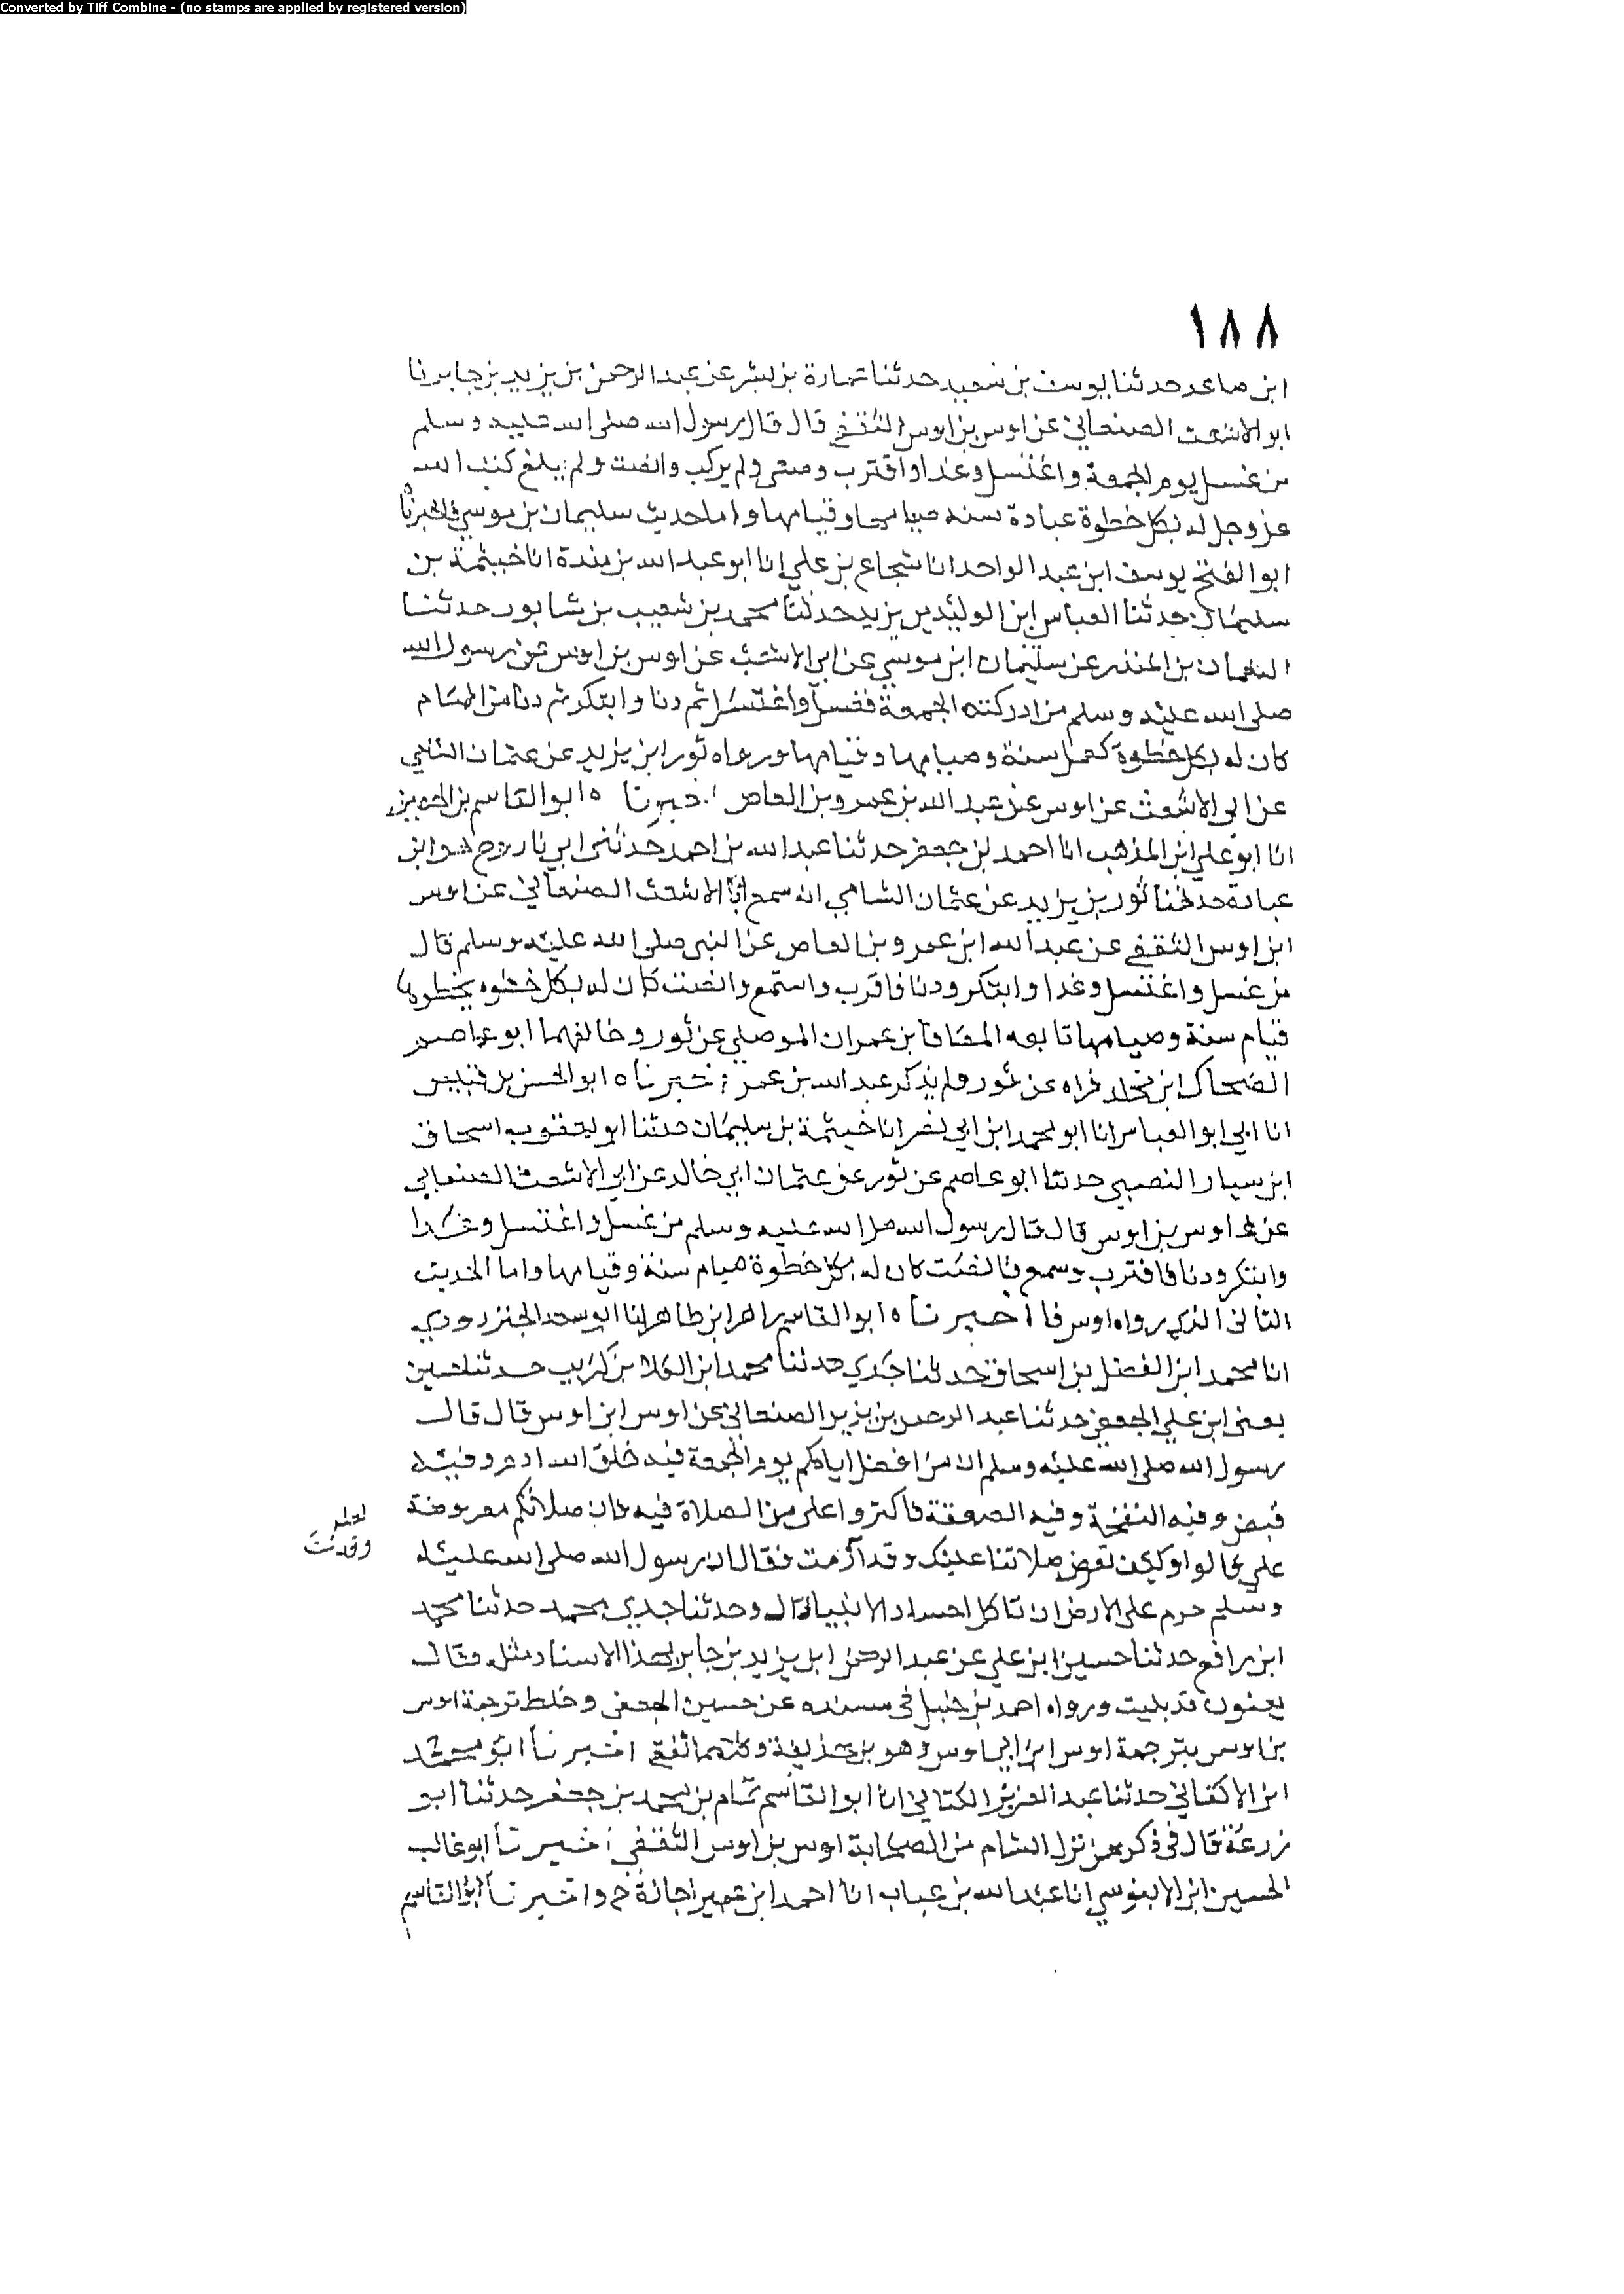 Converted by Tiff Combine - (no stamps are applied by registered version)
١٨٨
ابن صاعد حدثنا يوسف بن سعيد حدثنا عمارة بن بشر عن عبد الرحمن بن يزيد بن جابر نا
ابو الاشعث الصنعاني عن اوس بن اوس الثقفي قال قال رسول الله صلى الله عليه وسلم
من غسل يوم الجمعة واغتسل وغدا واقترب ومشى ولم يركب وانصت ولم يلغ كتب الله
عز وجل له بكل خطوة عبادة سنة صيامها وقيامها واما حديث سليمان بن موسي فاخبرنا
ابو الفتح يوسف ابن عبد الواحد انا شجاع بن علي انا ابو عبد الله بن مندة انا خيثمة بن
سليمان حدثنا العباس ابن الوليد بن يزيد حدثنا محمد بن شعيب بن شابور حدثنا
النعمان بن المنذر عن سليمان ابن موسي عن ابي الاشعث عن اوس بن اوس عن رسول الله
صلى الله عليه وسلم من ادركته الجمعة فغسل واغتسل ثم دنا وابتكر ثم دنا من الامام
كان له بكل خطوة كعمل سنة وصيامها وقيامها ورواه ثور ابن يزيد عن عثمان الشامي
عن ابي الاشعث عن اوس عن عبد الله بن عمرو بن العاص اخبرنا ه ابو القاسم بن الحصين
انا ابو علي ابن المذهب انا احمد بن جعفر حدثنا عبد الله بن احمد حدثني ابي نا روح هو ابن
عبادة حدثنا ثور بن يزيد عن عثمان الشامي انه سمع ابا الاشعث الصنعاني عن اوس
ابن اوس الثقفي عن عبد الله ابن عمرو بن العاص عن النبي صلى الله عليه وسلم قال
من غسل واغتسل وغدا وابتكر ودنا فاقرب واستمع وانصت كان له بكل خطوه يخطوها
قيام سنة وصيامها تابعه المعافا بن عمران الموصلي عن ثور وخالفهما ابو عاصم
الضحاك ابن مخلد فراه عن ثور ولم يذكر عبد الله بن عمر اخبرناه ابو الحسن بن قبيس
انا ابي ابو العباس انا ابو محمد ابن ابي نصر انا خيثمة بن سليمان حدثنا ابو يعقوب اسحاق
ابن سيار النصيبي حدثنا ابو عاصم عن ثور عن عثمان ابي خالد عن ابي الاشعث الصنعاني
عن اوس بن اوس قال قال رسول الله صلى الله عليه وسلم من غسل واغتسل وغدا
وابتكر ودنا فاقترب وسمع فانصت كان له بكل خطوة صيام سنة وقيامها واما الحديث
الثاني الذي رواه اوس فا اخبرناه ابو القاسم زاهر ابن طاهر انا ابو سعد الجنزرودي
انا محمد ابن الفضل بن اسحاق حدثنا جدي حدثنا محمد ابن العلا بن كريب حدثنا حسين
يعني ابن علي الجعفي حدثنا عبد الرحمن بن يزيد الصنعاني عن اوس ابن اوس قال قال
رسول الله صلى الله عليه وسلم ان من افضل ايامكم يوم الجمعة فيه خلق الله ادم وفيه
قبض وفيه النفخة وفيه الصعقة فاكثروا على من الصلاة فيه فان صلاتكم معروضة
علي قالوا وكيف تعرض صلاتنا عليك وقد ارمت فقال ان رسول الله صلى الله عليه
لعله
وقد
وسلم حرم على الارض ان تاكل اجساد الانبيا قال وحدثنا جدي محمد حدثنا محمد
ابن رافع حدثنا حسين ابن علي عن عبد الرحمن ابن يزيد بن جابر بهذا الاسناد مثله وقال
يعنون قد بليت ورواه احمد بن حنبل في مسنده عن حسين الجعفي وخلط ترجمة اوس
بن اوس بترجمة اوس ابن ابي اوس وهو بن حذيفة وكلاهما ثقفي اخبرنا ابو محمد
ابن الاكفاني حدثنا عبد العزيز الكتاني انا ابو القاسم تمام بن محمد بن جعفر حدثنا ابو
زرعة قال في ذكر من نزل الشام من الصحابة اوس بن اوس الثقفي اخبرنا ابو غالب
الحسين ابن الابنوسي انا عبد الله بن عباب انا احمد ابن عمير اجازة ح واخبرنا ابو القاسم